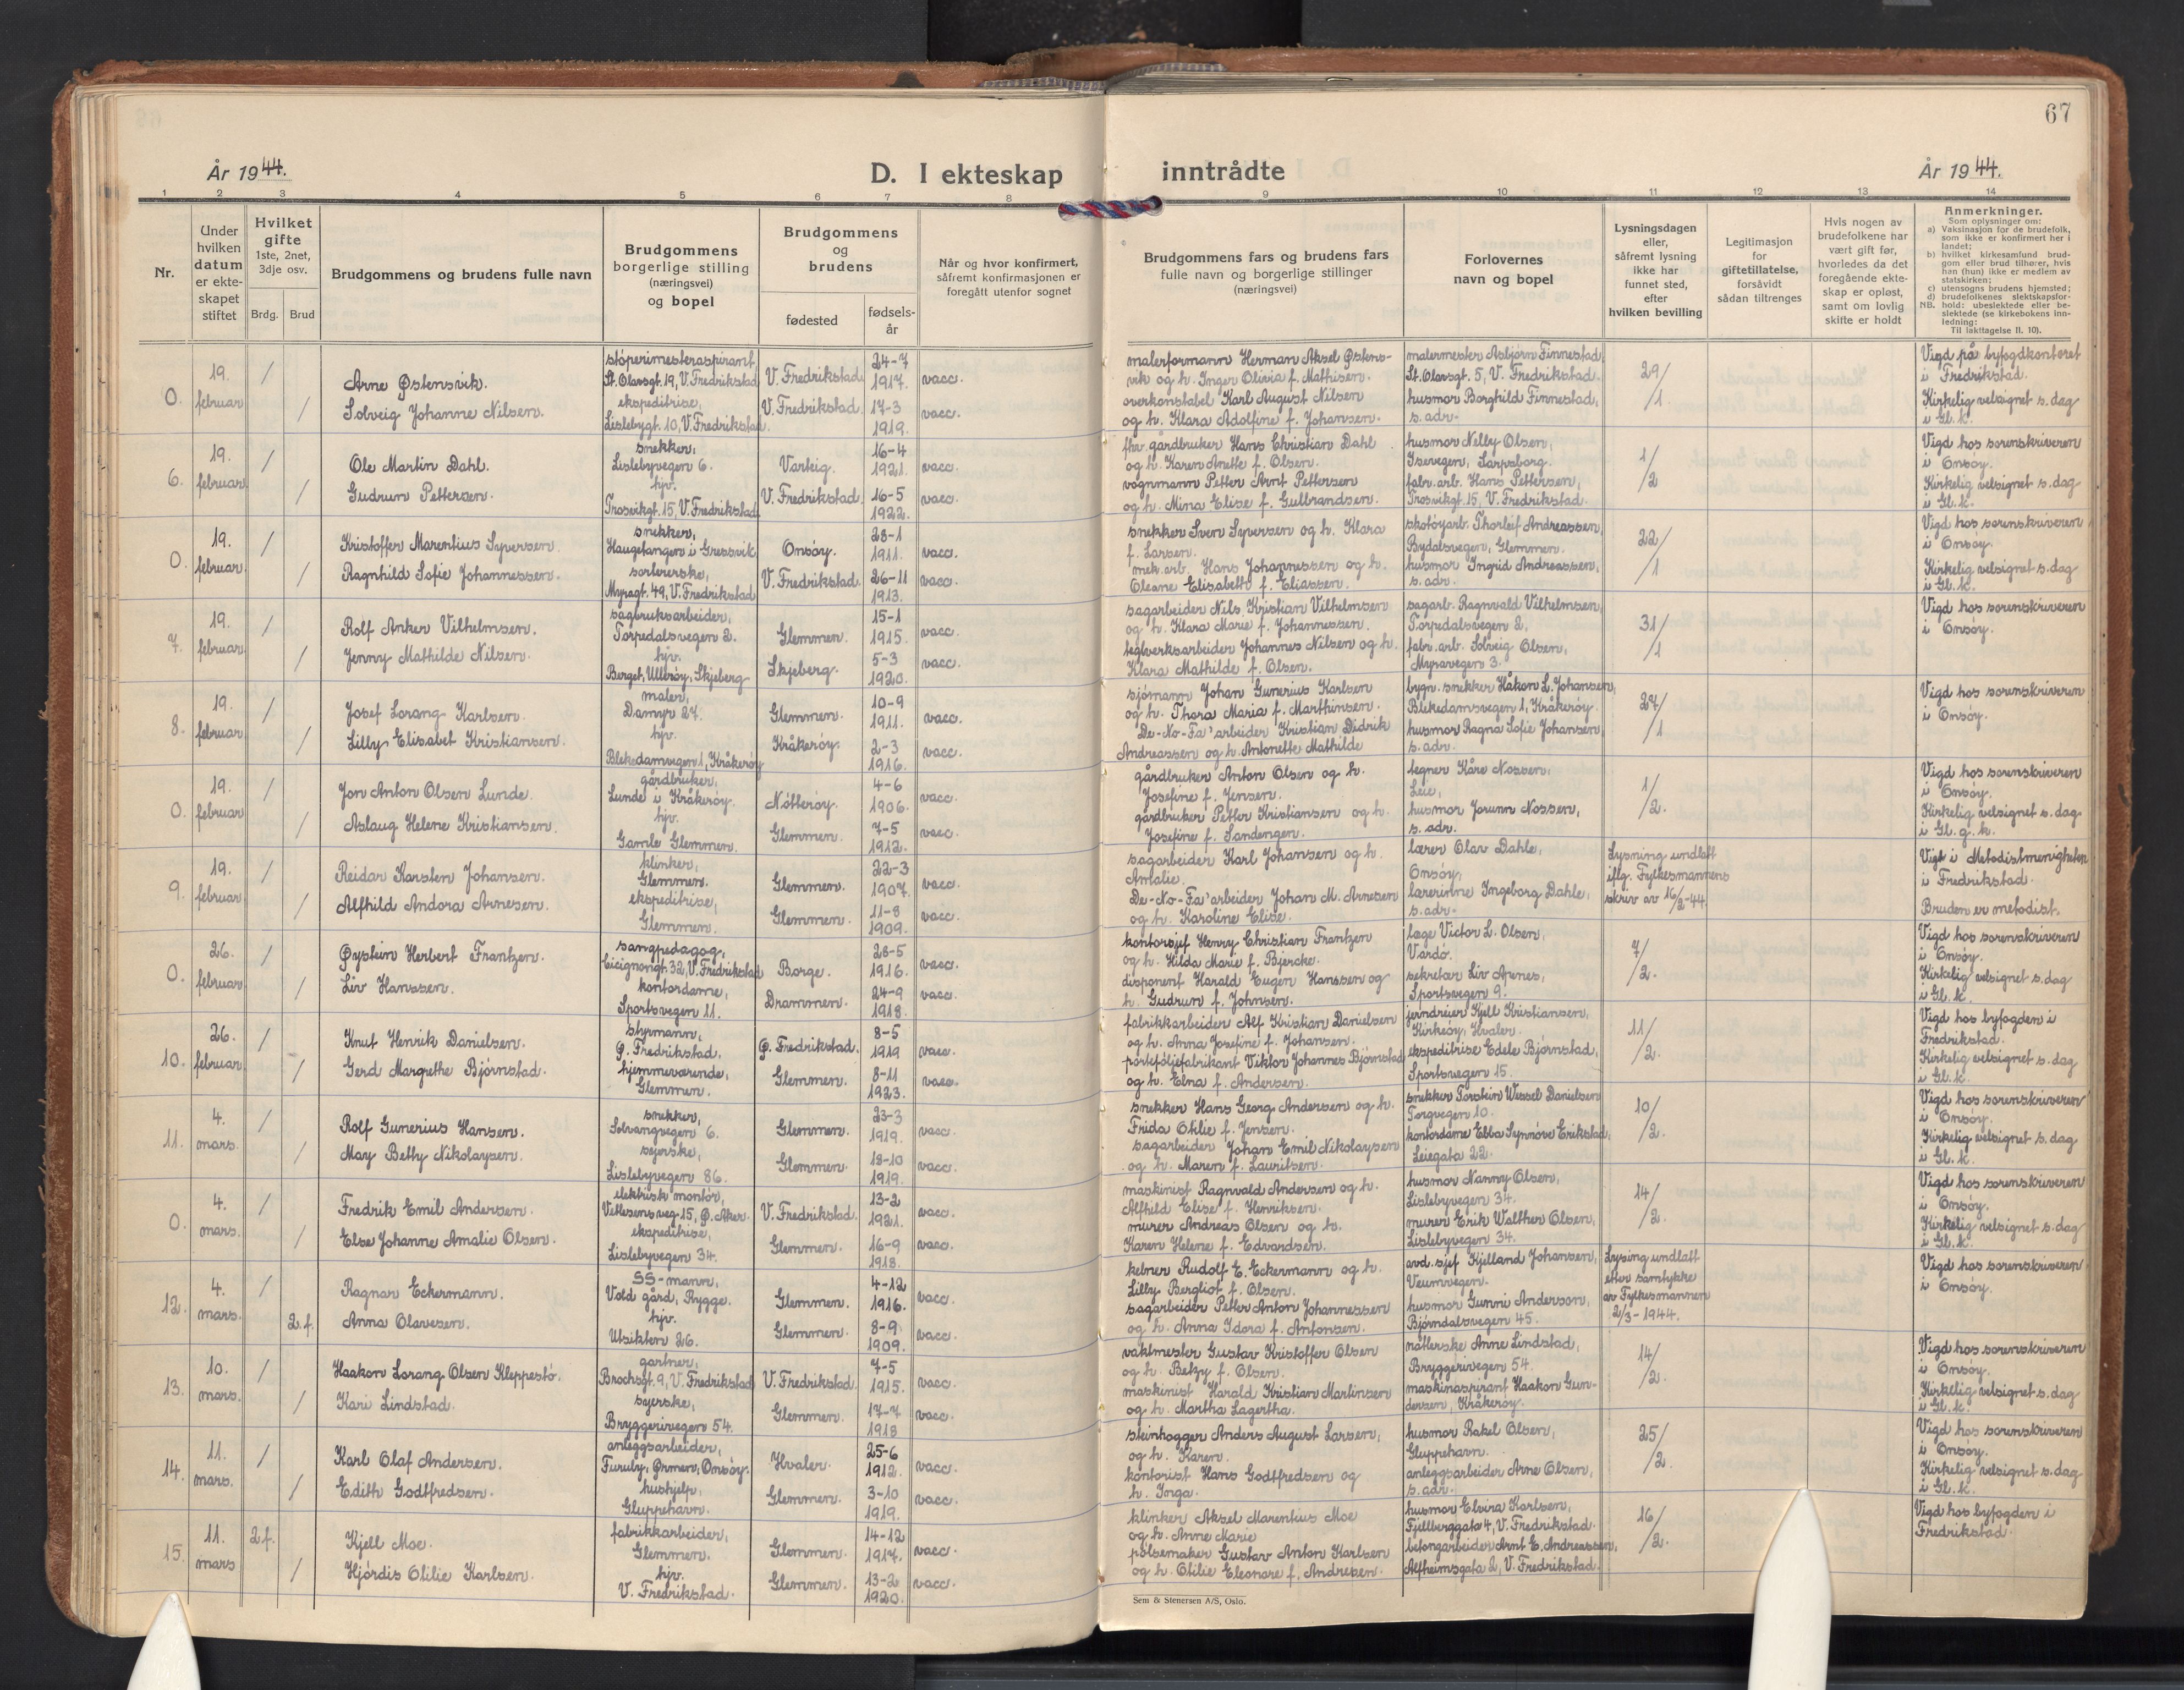 67
År 1944.
D. I ekteskap inntrådte
År 1944.
1 2 3 4 5 6 7 8 9 10 11 12 13 14
Nr.
Under
hvilken
datum
er ekte-
skapet
stiftet
Hvilket
gifte
1ste, 2net,
3dje osv.
Brdg. Brud
Brudgommens og brudens fulle navn
Brudgommens
borgerlige stilling
(næringsvei)
og bopel
Brudgommens
og
brudens
fødested
fødsels-
år
Når og hvor konfirmert,
såfremt konfirmasjonen er
foregått utenfor sognet
Brudgommens fars og brudens fars
fulle navn og borgerlige stillinger
(næringsvei)
Forlovernes
navn og bopel
Lysningsdagen
eller,
såfremt lysning
ikke har
funnet sted,
efter
hvilken bevilling
Legitimasjon
for
giftetillatelse,
forsåvidt
sådan tiltrenges
Hvis nogen av
brudefolkene har
vært gift før,
hvorledes da det
foregående ekte-
skap er opløst,
samt om lovlig
skifte er holdt
Anmerkninger.
Som oplysninger om:
a) Vaksinasjon for de brudefolk,
som ikke er konfirmert her i
landet;
b) hvilket kirkesamfund brud-
gom eller brud tilhører, hvis
han (hun) ikke er medlem av
statskirken;
c) utensogns brudens hjemsted;
d) brudefolkenes slektskapsfor-
NB. hold: ubeslektede eller be-
slektede (se kirkebokens inn-
ledning:
Til iakttagelse II. 10).
0. 19. februar / /
Arne Østensvik.
Solveig Johanne Nilsen.
stóperimesteraspirant
St. Olavsgt. 19, V. Fredrikstad
ekspeditrise,
Lislebygt. 10, V. Fredrikstad.
V. Fredrikstad. 24-7 1917. vacc.
V. Fredrikstad. 17-3 1919. vacc.
malerformann Herman Aksel Østens-
vik og h. Inger Olivia f. Mathisen.
overkonstabel Karl August Nilsen
og h. Klara Adolfine f. Johansen.
malermester Asbjørn Finnestad,
St. Olavsgt. 5, V. Fredrikstad.
husmor Borghild Finnestad,
s. adr.
29/1.
Vigd på byfogdkontoret
i Fredrikstad.
Kirkelig velsignet s. dag
i Gl. k.
6. 19. februar / /
Ole Martin Dahl.
Gudrun Pettersen.
snekker,
Lislebyvegen 6.
hjv.
Trosvikgt. 15, V. Fredrikstad
Varteig. 16-4 1921. vacc.
V. Fredrikstad. 16-5 1922. vacc.
fhv. gårdbruker Hans Christian Dahl
og h. Karen Anette f. Olsen.
vognmann Petter Arnt Pettersen
og h. Mina Elise f. Gulbrandsen.
husmor Nelly Olsen,
Isevegen, Sarpsborg.
fabr. arb. Hans Pettersen,
Trosvikgt. 15, V. Fredrikstad.
1/2
Vigd hos sorenskriveren
i Onsøy.
Kirkelig velsignet s. dag
i Gl. k.
0. 19. februar / /
Kristoffer Marentius Syversen.
Ragnhild Sofie Johannessen.
snekker,
Haugetangen i Gressvik
sorlererske,
Myragt. 49, V. Fredrikstad
Onsøy. 28-1 1911. vacc.
V. Fredrikstad. 26-11 1913. vacc.
snekker Sven Syversen og h. Klara
f. Larsen.
mek. arb. Hans Johannessen og h.
Oleane Elisabeth f. Eliassen.
skotøyarb. Thorleif Andreassen,
Bydalsvegen, Glemmen.
husmor Ingrid Andreassen,
s. adr.
22/1
Vigd hos sorenskriveren
i Onsøy.
Kirkelig velsignet s. dag
i Gl. k.
7. 19. februar / /
Rolf Anker Vilhelmsen.
Jenny Mathilde Nilsen.
sagbruksarbeider,
Torpedalsvegen 2.
hjv.
Berget, Ullerøy, Skjeberg
Glemmen. 15-1 1915. vacc.
Skjeberg. 5-3 1920. vacc.
sagarbeider Nils Kristian Vilhelmsen
og h. Klara Marie f. Johannessen.
teglverksarbeider Johannes Nilsen og h.
Klara Mathilde f. Olsen.
sagarb. Ragnvald Vilhelmsen,
Torpedalsvegen 2,
fabr. arb. Solveig Olsen,
Myravegen 3.
31/1
Vigd hos sorenskriveren
i Onsøy.
8. 19. februar / /
Josef Lorang Karlsen.
Lilly Elisabet Kristiansen.
maler,
Damyr 27.
hjv.
Blekedamvegen 1, Kråkerøy
Glemmen. 10-9 1911. vacc.
Kråkerøy. 2-3 1916. vacc.
sjómann Johan Gunerius Karlsen
og h. Thora Maria f. Marthinsen.
De-No-Fa' arbeider Kristian Didrik
Andreassen og h. Antonette Mathilde
bygn. snekker Håkon L. Johansen,
Blekedamsvegen 1, Kråkerøy.
husmor Ragna Sofie Johansen,
s. adr.
27/1
Vigd hos sorenskriveren
i Onsøy.
0. 19. februar / /
Jon Anton Olsen Lunde.
Aslaug Helene Kristiansen.
gårdbruker,
Lunde i Kråkerøy.
hjv.
Gamle Glemmen.
Nøtterøy. 4-6 1906. vacc.
Glemmen. 7-5 1912. vacc.
gårdbruker Anton Olsen og h.
Josefine f. Jensen.
gårdbruker Petter Kristiansen og h.
Josefine f. Sandengen.
tegner Kåre Nossen,
Leie,
husmor Jorunn Nossen,
s. adr.
1/2.
Vigd hos sorenskriveren
i Onsøy.
Kirkelig velsignet s. dag
i Gl. g. k.
9. 19. februar / /
Reidar Karsten Johansen.
Alfhild Andora Arnesen.
klinker,
Glemmen.
ekspeditrise,
Glemmen.
Glemmen. 22-3 1907. vacc.
Glemmen. 11-8 1909. vacc.
sagarbeider Karl Johansen og h.
Amalie.
De-No-Fa' arbeider Johan M. Arnesen
og h. Karoline Elise.
lærer Olav Dahle,
Onsøy,
lærerinne Ingeborg Dahle,
s. adr.
Lysning undlatt
iflg. Fylkesmannens
skriv av 16/2-44.
Vigd i Metodistmenigheten
i Fredrikstad.
Bruden er metodist.
0. 26. februar / /
Øystein Herbert Frantzen.
Liv Hanssen.
sangpedagog,
Cicignongt. 32, V. Fredrikstad
kontordame,
Sportsvegen 11.
Borge. 28-5 1916. vacc.
Drammen. 24-9 1918. vacc.
kontorsjef Henry Christian Frantzen
og h. Hilda Marie f. Bjercke.
disponent Harald Eugen Hanssen og
h. Gudrun f. Johnsen.
læge Victor L. Olsen,
Vardø.
sekretær Liv Arenes,
Sportsvegen 9.
7/2.
Vigd hos sorenskriveren
i Onsøy.
Kirkelig velsignet s. dag
i Gl. k.
10. 26. februar / /
Knut Henrik Danielsen.
Gerd Margrethe Bjørnstad.
styrmann,
Ø. Fredrikstad.
hjemmeværende,
Glemmen.
Ø. Fredrikstad. 8-5 1919 vacc.
Glemmen. 8-11 1923. vacc.
fabrikkarbeider Alf Kristian Danielsen
og h. Anna Josefine f. Johansen.
porteføljefabrikant Viktor Johannes Bjørnstad
og h. Elna f. Andersen.
jerndreier Kjell Kristiansen,
Kirkeøy, Hvaler.
ekspeditrise Edele Bjørnstad,
Sportsvegen 15.
11/2.
Vigd hos byfogden i
Fredrikstad.
Kirkelig velsignet s. dag
i Gl. k.
11. 4. mars. / /
Rolf Gunerius Hansen.
May Betty Nikolaysen.
snekker,
Solvangvegen 6.
syerske,
Lislebyvegen 86.
Glemmen. 23-3 1919. vacc.
Glemmen. 18-10 1919. vacc.
snekker Hans Georg Andersen og h.
Frida Otilie f. Jensen.
sagarbeider Johan Emil Nikolaysen
og h. Maren f. Lauritsen.
snekker Torstein Wessel Danielsen
Torgvegen 10.
kontordame Ebba Synnøve Erikstad,
Leiegata 22.
10/2.
Vigd hos sorenskriveren
i Onsøy.
Kirkelig velsignet s. dag
i Gl. k.
0. 4. mars. / /
Fredrik Emil Andersen.
Else Johanne Amalie Olsen.
elektrisk montør,
Vetlesens veg. 15, Ø. Aker.
ekspeditrise,
Lislebyvegen 34.
V. Fredrikstad. 13-2 1921. vacc.
Glemmen. 16-9 1918. vacc.
maskinist Ragnvald Andersen og h.
Alfhild Elise f. Henriksen.
murer Andreas Olsen og h.
Karen Helene f. Edvardsen.
husmor Nanny Olsen,
Lislebyvegen 34.
murer Erik Walther Olsen,
Lislebyvegen 34.
14/2.
Vigd hos sorenskriveren
i Onsøy.
Kirkelig velsignet s. dag
i Gl. k.
12. 4. mars. / 2.f.
Ragnar Eckermann.
Anna Olavesen.
SS-mann,
Vold gård, Rygge.
hjv.
Utsikten 26.
Glemmen. 4-12 1916. vacc.
Glemmen. 8-9 1909. vacc.
kelner Rudolf E. Eckermann og h.
Lilly Bergliot f. Olsen.
sagarbeider Petter Anton Johannessen
og h. Anna Idora f. Antonsen.
avd. sjef Kjelland Johansen,
Veumvegen.
husmor Gunni Anderson,
Bjørndalsvegen 45.
Lysing undlatt
etter samtykke
av Fylkesmannen
2/3-1944.
Vigd hos sorenskriveren
i Onsøy.
13. 10. mars. / /
Haakon Lorang Olsen Kleppestø.
Kari Lindstad.
gartner,
Brochsgt. 9, V. Fredrikstad
syerske,
Bryggerivegen 54.
V. Fredrikstad. 7-5 1915. vacc.
Glemmen. 17-7 1918 vacc.
vaktmester Gustav Kristoffer Olsen
og h. Betzy f. Olsen.
maskinist Harald Kristian Martinsen
og h. Martha Lagertha.
nåtlerske Anne Lindstad,
Bryggerivegen 54.
maskinaspirant Haakon Gun-
dersen, Kråkerøy.
14/2.
Vigd hos sorenskriveren
i Onsøy.
Kirkelig velsignet s. dag
i Gl. k.
14. 11. mars. / /
Karl Olaf Andersen.
Edith Godtfredsen.
anleggsarbeider,
Furuly, Ørmen, Onsøy.
hushjelp,
Gluppehavn.
Hvaler. 25-6 1912. vacc.
Glemmen. 3-10 1919. vacc.
steinhogger Anders August Larsen,
og h. Karen.
kontorist Hans Godtfredsen og
h. Inga.
husmor Rakel Olsen,
Gluppehavn.
anleggsarbeider Arne Olsen,
s. adr.
25/2.
Vigd hos sorenskriveren
i Onsøy.
Kirkelig velsignet s. dag
i Gl. k.
15. 11. mars 2.f. /
Kjell Moe.
Hjördis Otilie Karlsen.
fabrikkarbeider,
Glemmen.
hjv.
V. Fredrikstad.
Glemmen. 14-12 1917. vacc.
Glemmen. 13-2 1920. vacc.
klinker Aksel Marentius Moe
og h. Anne Marie
pølsemaker Gustav Anton Karlsen
og h. Otilie Eleonore f. Andresen.
husmor Elvira Karlsen,
Fjellberggata 4, V. Fredrikstad.
betongarbeider Arnt E. Andreassen,
Alfheimsgata 2, V. Fredrikstad.
16/2.
Vigd hos byfogden i
Fredrikstad.
Sem & Stenersen A/S, Oslo.